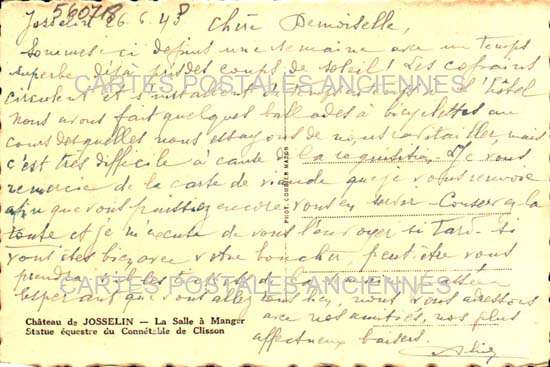 560713
Josselin 26.6.43 Chère Demoiselle,
Sommes ici depuis une semaine avec un temps
superbe déjà pris des coups de soleil ! Les copains
CARTES POSTALES ANCIENNES
circulent et s'installent l'hôtel
nous avons fait quelques ballades à bicyclettes au
cours desquelles nous essayons de nous ravitailler, mais
c'est très difficile à cause de la réquisition. Je vous
remercie de la carte de viande que je vous renvoie
PHOT. COMBIER MACON
afin que vous puissiez encore vous en servir. Conservez la
toute et je m'excute de vous l'envoyer si tard. Si
vous êtes bien avec votre boucher, peut-être vous
prendra les tickets de
CARTES POSTALES ANCIENNES
Espérant que vous allez tous bien, nous vous adressons
Château de JOSSELIN — La Salle à Manger
avec nos amitiés, nos plus
Statue équestre du Connétable de Clisson
affectueux baisers.